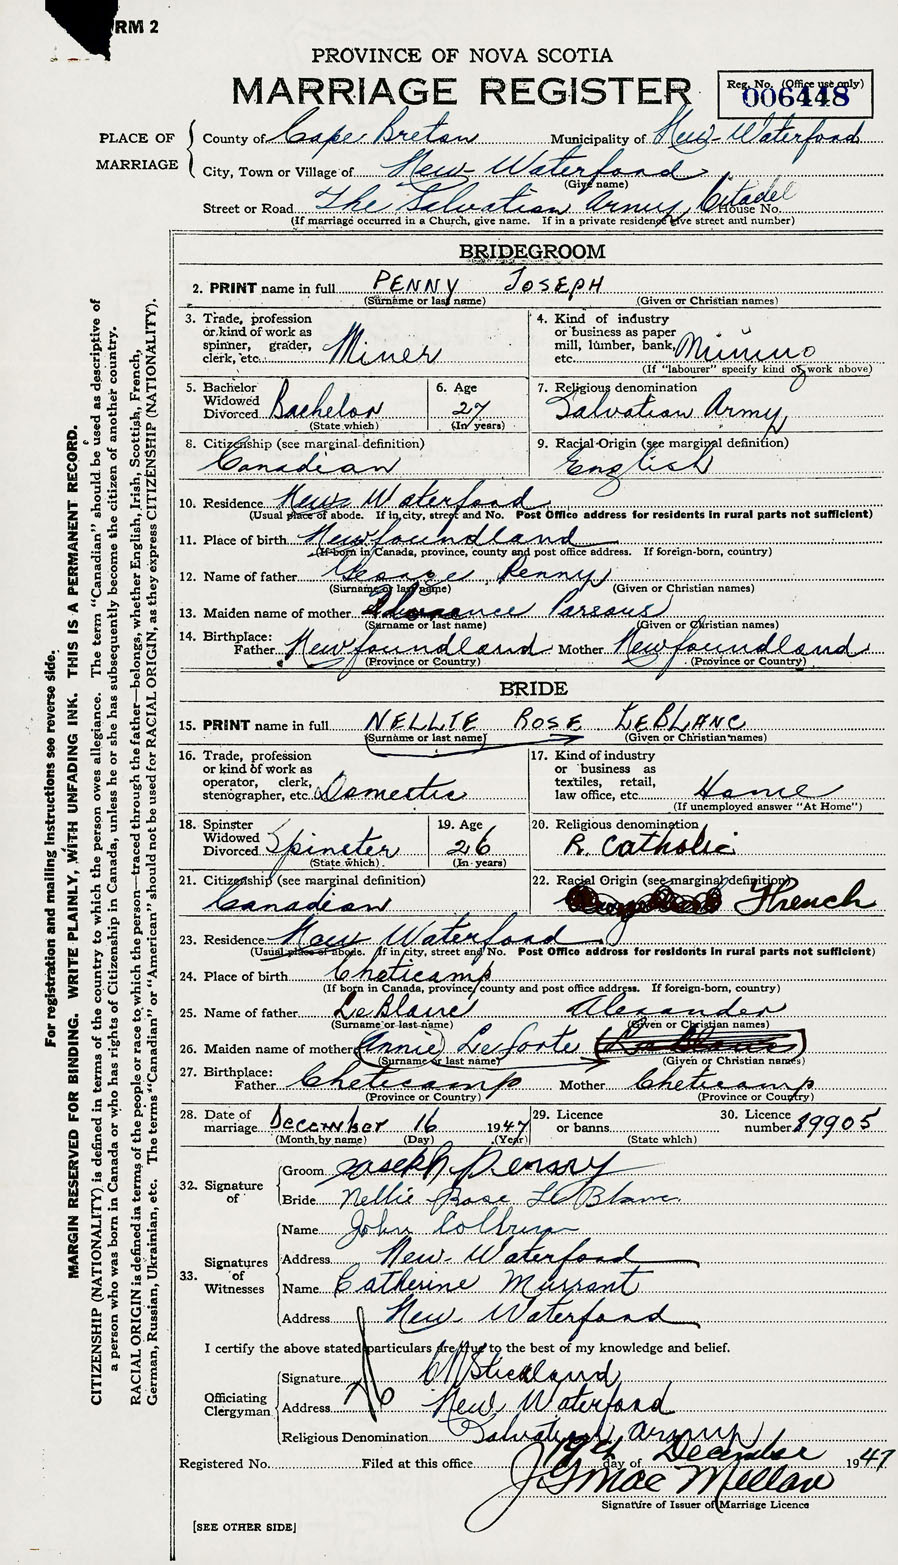 RM 2
PROVINCE OF NOVA SCOTIA
MARRIAGE REGISTER
Reg. No. (Office use only)
006448
PLACE OF MARRIAGE
County of Cape Breton Municipality of New-Waterford
City, Town or Village of New-Waterford
(Give name)
Street or Road The Salvation Army Citadel House No.
(If marriage occurred in a Church, give name. If in a private residence give street and number)
BRIDEGROOM
2. PRINT name in full PENNY JOSEPH
(Surname or last name) (Given or Christian names)
3. Trade, profession or kind of work as spinner, grader, clerk, etc. Miner
4. Kind of industry or business as paper mill, lumber, bank, etc. Mining
(If "labourer" specify kind of work above)
5. Bachelor Widowed Divorced Bachelor
(State which)
6. Age 27
(In years)
7. Religious denomination
Salvation Army
8. Citizenship (see marginal definition)
Canadian
9. Racial Origin (see marginal definition)
English
10. Residence New Waterford
(Usual place of abode. If in city, street and No. Post Office address for residents in rural parts not sufficient)
11. Place of birth Newfoundland
(If born in Canada, province, county and post office address. If foreign-born, country)
12. Name of father George Penny
(Surname or last name) (Given or Christian names)
13. Maiden name of mother Parsons
(Surname or last name) (Given or Christian names)
14. Birthplace: Father Newfoundland Mother Newfoundland
(Province or Country) (Province or Country)
BRIDE
15. PRINT name in full NELLIE ROSE LEBLANC
(Surname or last name) (Given or Christian names)
16. Trade, profession or kind of work as operator, clerk, stenographer, etc. Domestic
17. Kind of industry or business as textiles, retail, law office, etc. Home
(If unemployed answer "At Home")
18. Spinster Widowed Divorced Spinster
(State which)
19. Age 26
(In years)
20. Religious denomination
R. Catholic
21. Citizenship (see marginal definition)
Canadian
22. Racial Origin (see marginal definition)
French
23. Residence New Waterford
(Usual place of abode. If in city, street and No. Post Office address for residents in rural parts not sufficient)
24. Place of birth Cheticamp
(If born in Canada, province, county and post office address. If foreign-born, country)
25. Name of father LeBlanc Alexander
(Surname or last name) (Given or Christian names)
26. Maiden name of mother Annie LeForte
(Surname or last name) (Given or Christian names)
27. Birthplace: Father Cheticamp Mother Cheticamp
(Province or Country) (Province or Country)
28. Date of marriage December 16 1947
(Month by name) (Day) (Year)
29. Licence or banns
(State which)
30. Licence number 89905
32. Signature of
Groom Joseph Penny
Bride Nellie Rose Le Blanc
33. Signatures of Witnesses
Name John
Address New-Waterford
Name Catherine Murrant
Address New Waterford
I certify the above stated particulars are true to the best of my knowledge and belief.
Officiating Clergyman
Signature Stickland
Address New Waterford
Religious Denomination Salvation Army
Registered No. Filed at this office 19th day of December 1947
J G MacMillan
Signature of Issuer of Marriage Licence
[SEE OTHER SIDE]
For registration and mailing instructions see reverse side.
MARGIN RESERVED FOR BINDING. WRITE PLAINLY, WITH UNFADING INK. THIS IS A PERMANENT RECORD.
CITIZENSHIP (NATIONALITY) is defined in terms of the country to which the person owes allegiance. The term "Canadian" should be used as descriptive of
a person who was born in Canada or who has rights of Citizenship in Canada, unless he or she has subsequently become the citizen of another country.
RACIAL ORIGIN is defined in terms of the people or race to which the person—traced through the father—belongs, whether English, Irish, Scottish, French,
German, Russian, Ukrainian, etc. The terms "Canadian" or "American" should not be used for RACIAL ORIGIN, as they express CITIZENSHIP (NATIONALITY).